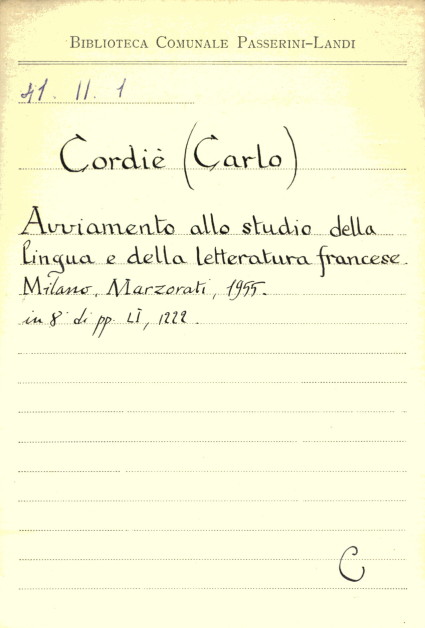 BIBLIOTECA COMUNALE PASSERINI-LANDI
41. II. 1
Cordiè (Carlo)
Avviamento allo studio della
lingua e della letteratura francese.
Milano, Marzorati, 1955.
in 8° di pp. LI, 1222.
C